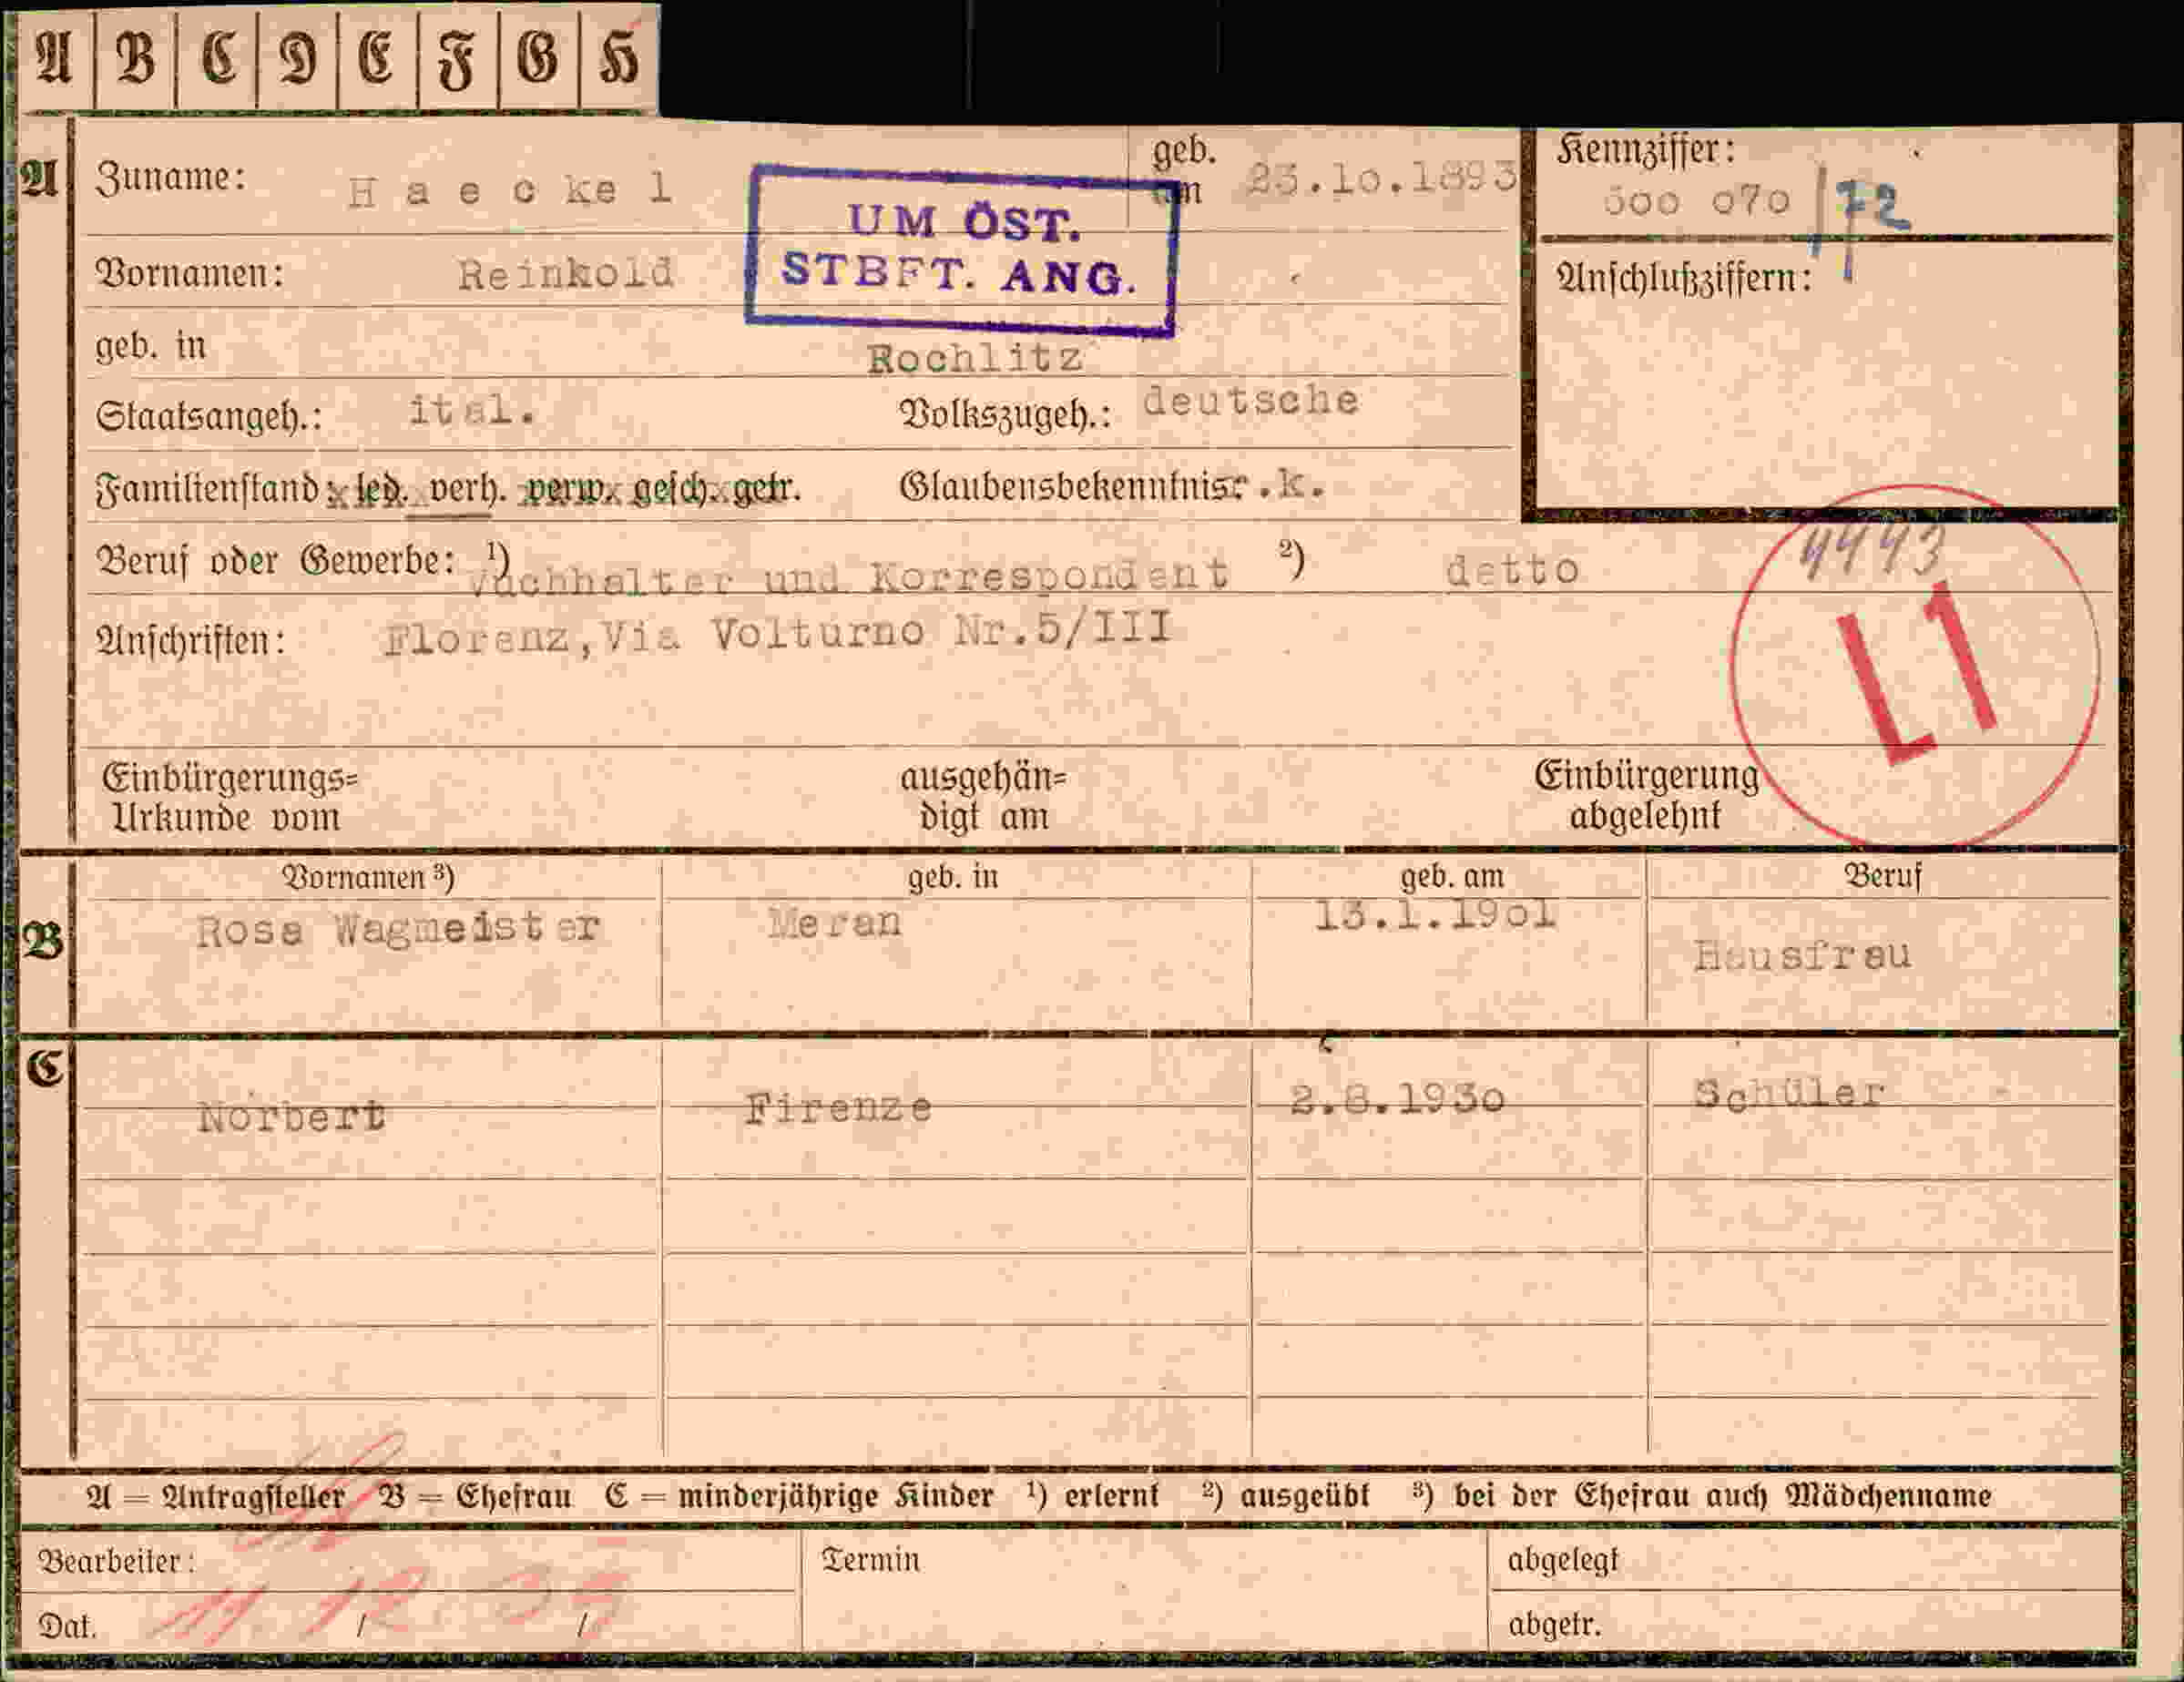 A B C D E F G H
A
Zuname: Haeckel
geb. am 23.10.1893
Kennziffer:
500 070 /72
UM ÖST.
STBFT. ANG.
Vornamen: Reinhold
Anschlußziffern:
geb. in Rochlitz
Staatsangeh.: ital. Volkszugeh.: deutsche
Familienstand: led. verh. verw. gesch. getr. Glaubensbekenntnis: r.k.
Beruf oder Gewerbe: ¹) Buchhalter und Korrespondent ²) detto
4443
Anschriften: Florenz,Via Volturno Nr.5/III
L1
Einbürgerungs= ausgehän= Einbürgerung
Urkunde vom digt am abgelehnt
Vornamen ³) geb. in geb. am Beruf
B Rosa Wagmeister Meran 13.1.1901 Hausfrau
C
Norbert Firenze 2.8.1930 Schüler
A = Antragsteller B = Ehefrau C = minderjährige Kinder ¹) erlernt ²) ausgeübt ³) bei der Ehefrau auch Mädchenname
Bearbeiter: Termin abgelegt
Dat. 11 / 12 / 39 abgetr.